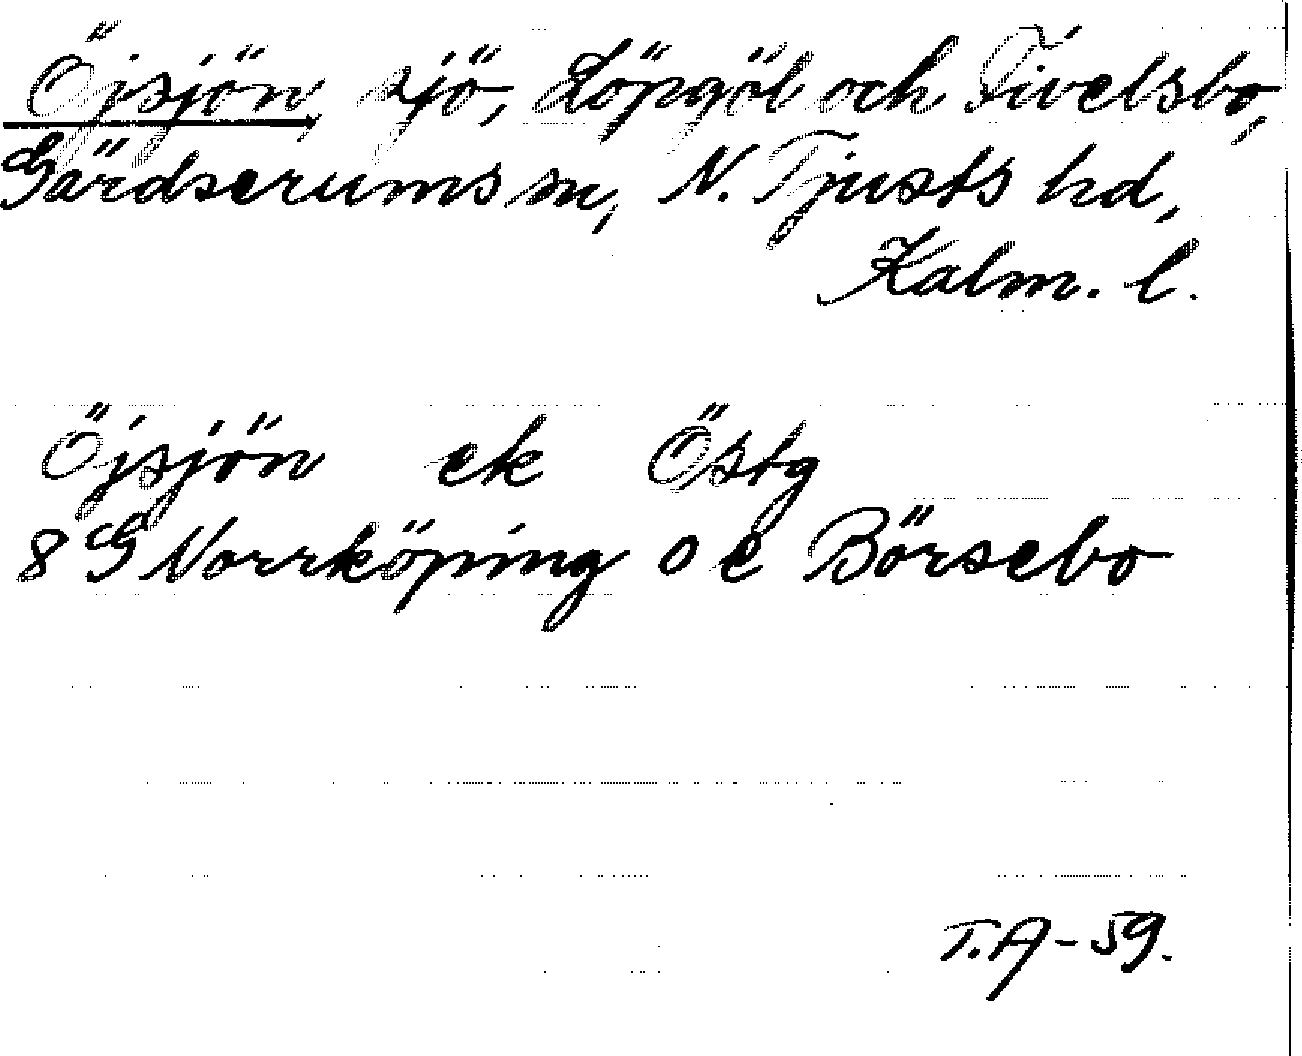 Öjsjön, sjö, Löpgöl och Tivelsbo,
Gärdserums sn, N. Tjusts hd,
Kalm. l.
Öjsjön ek Östg
8 G Norrköping o e Börsebo
T.A-59.